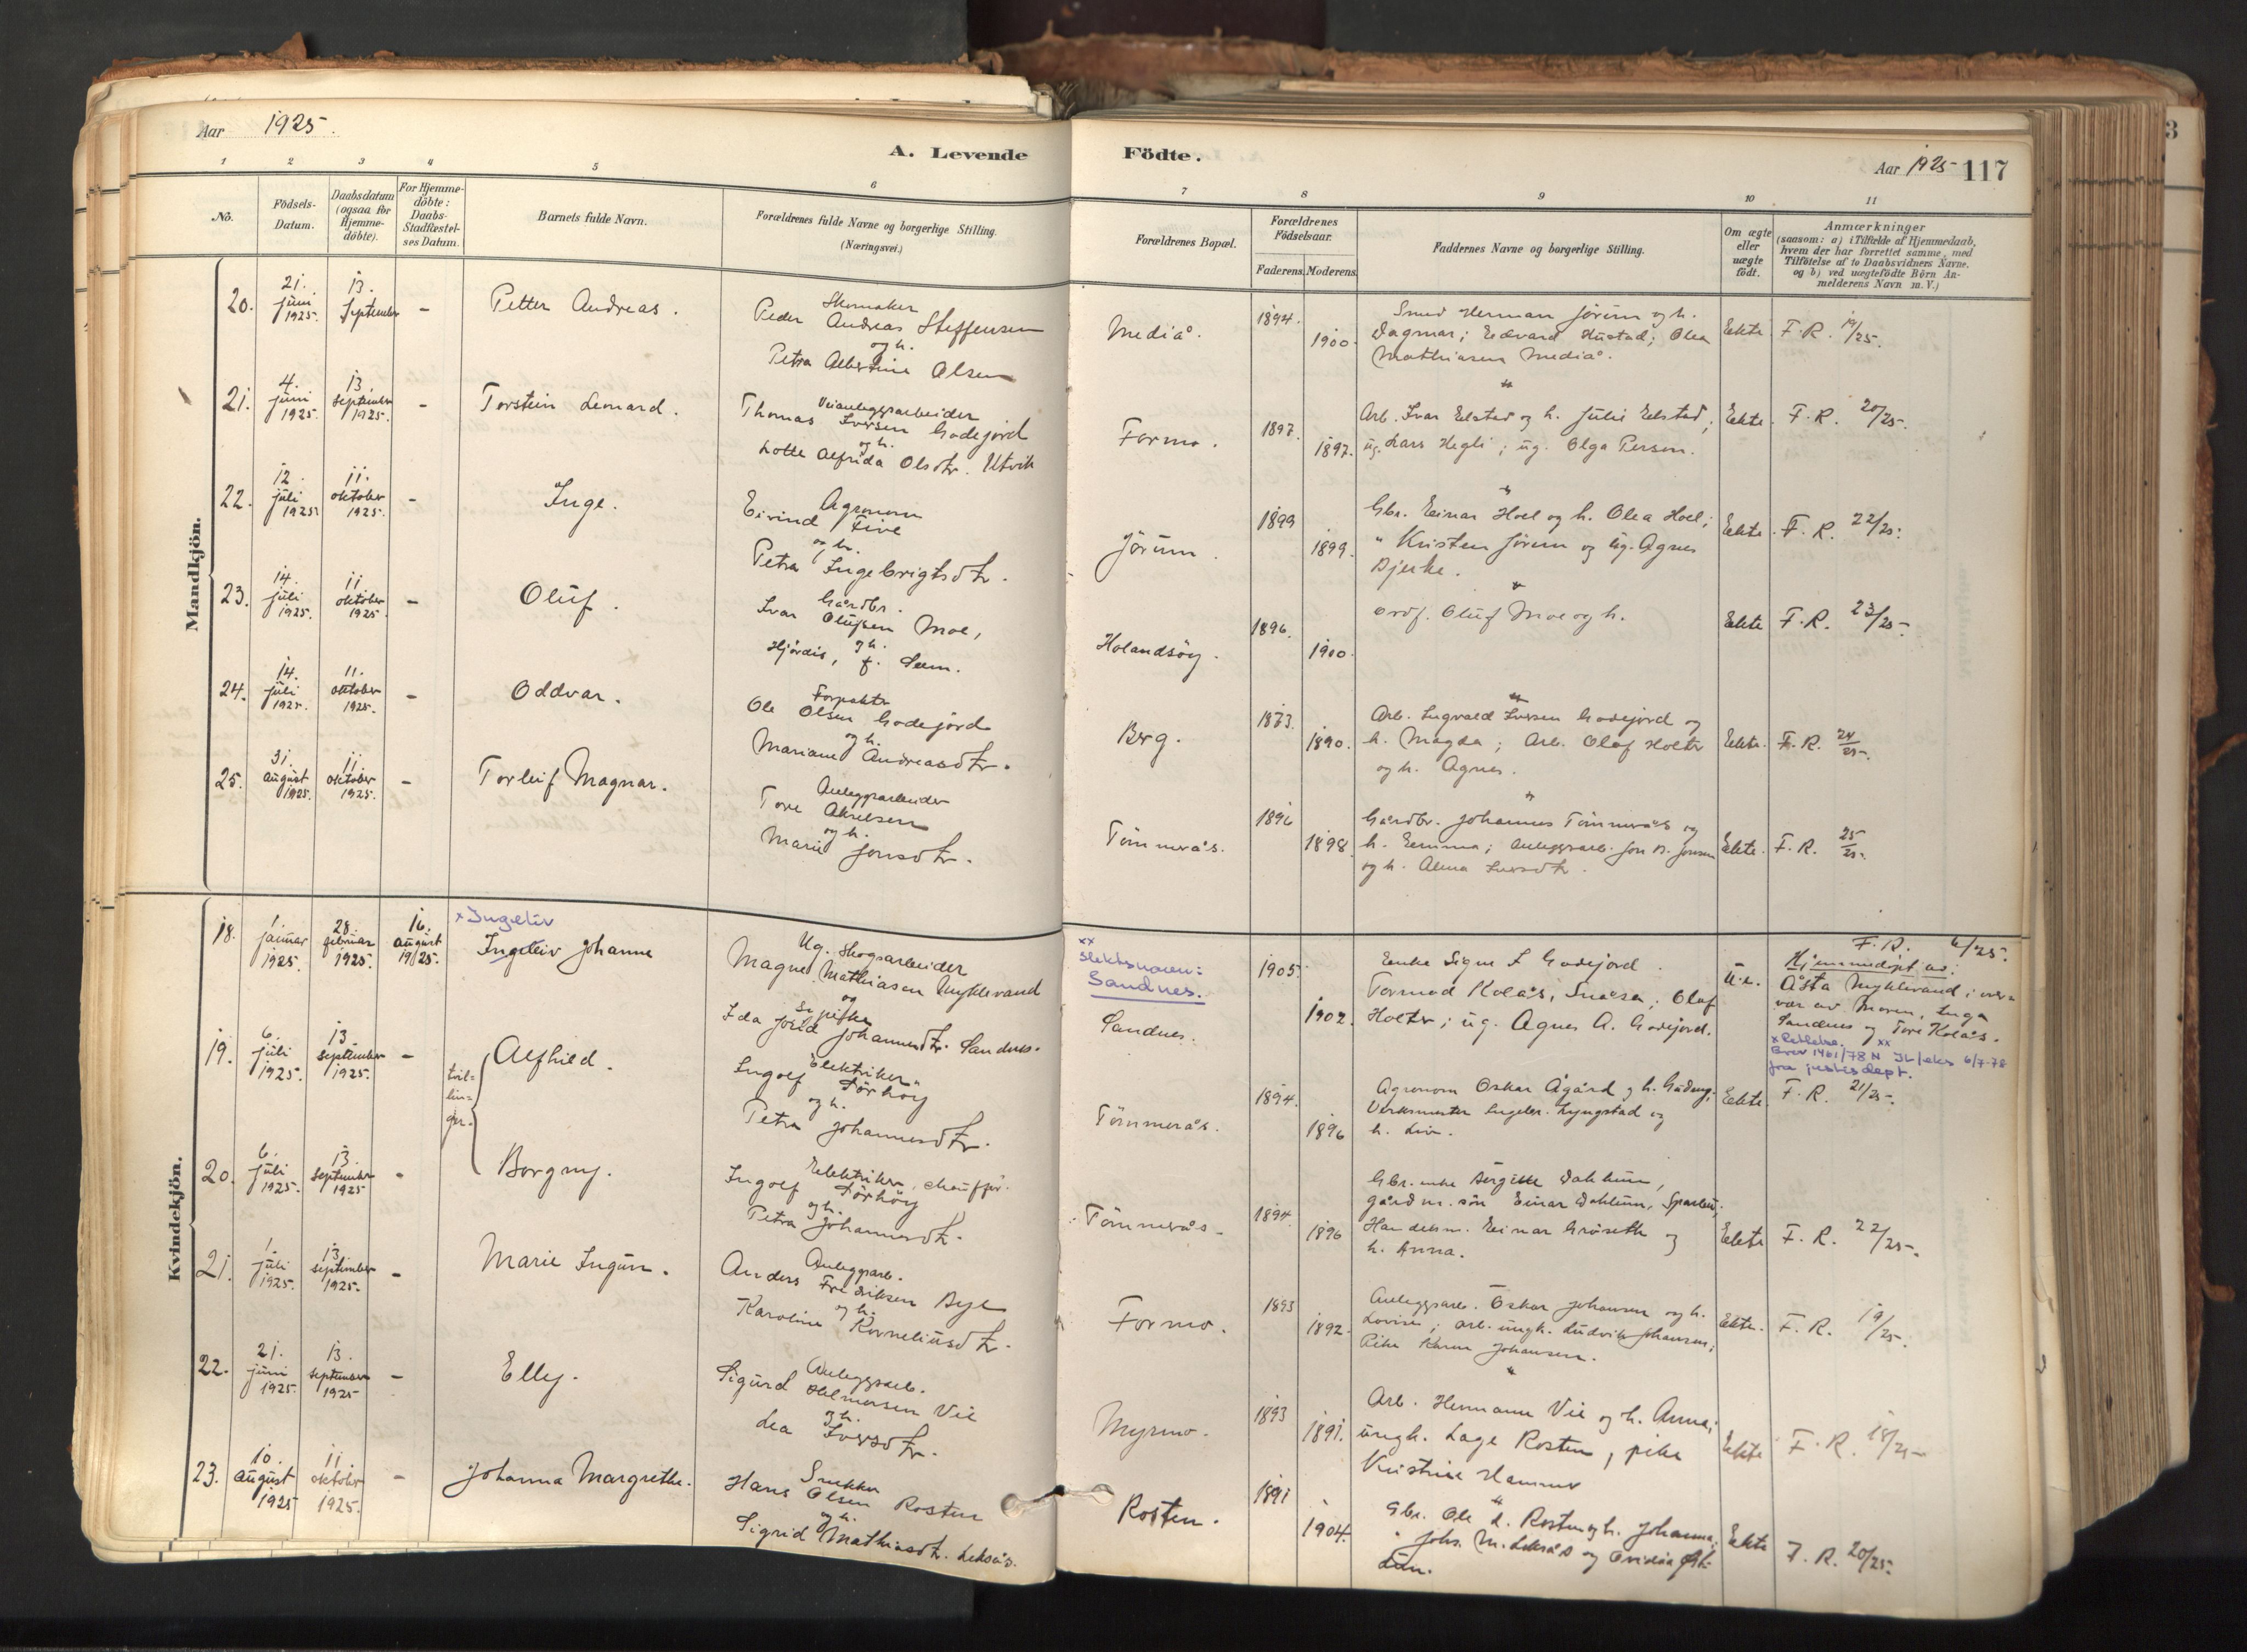 Aar 1925.
A. Levende Födte.
Aar 1925 117
1 2 3 4 5 6 7 8 9 10 11
No.
Födsels-
Datum.
Daabsdatum
(ogsaa for
Hjemme-
döbte).
For Hjemme-
döbte:
Daabs-
Stadfæstel-
ses Datum.
Barnets fulde Navn.
Forældrenes fulde Navne og borgerlige Stilling.
(Næringsvei.)
Forældrenes Bopæl.
Forældrenes
Födselsaar.
Faderens. Moderens.
Faddernes Navne og borgerlige Stilling.
Om ægte
eller
uægte
födt.
Anmærkninger
(saasom: a) i Tilfælde af Hjemmedaab,
hvem der har forrettet samme, med
Tilföielse af to Daabsvidners Navne.
og b) ved uægtefödte Börn An-
melderens Navn m. V.)
Mandkjön.
20.
21.
juni
1925.
13.
September
-
Petter Andreas.
Skomaker
Peder Andreas Steffensen
og h.
Petra Albertine Olsen
Mediå.
1894.
1900.
Smed Herman Jörum og h.
Dagmar; Edvard Hustad; Olea
Mathiasen Mediå.
Ekte
F. R. 19/25.
21.
4.
juni
1925.
13.
September
1925.
-
Torstein Lenard.
Veianleggsarbeider
Thomas Iversen Godejord
og h.
Lotte Alfrida Olsdtr. Utvik
Formo.
1897.
1897.
Arb. Ivar Elstad og h. Julie Elstad;
ug. Lars Hegli; ug. Olga Person.
Ekte.
F. R. 20/25.
22.
12.
juli
1925.
11.
oktober
1925.
-
Inge.
Agronom
Eivind Five
og h.
Petra Ingebrigtsdtr.
Jörum.
1899
1899.
Gbr. Einar Hoel og h. Olea Hoel;
" Kristen Jörum og ug. Agnes
Bjerke.
Ekte.
F. R. 22/25.
23.
14.
juli
1925.
11
oktober
1925.
-
Oluf.
Gårdbr.
Ivar Olufsen Moe,
og h.
Hjördis, f. Sem.
Holandsöy.
1896.
1900.
Ordf. Oluf Moe og h.
Ekte
F. R. 23/25.
24.
14.
juli
1925.
11.
oktober
1925.
-
Oddvar.
Forpakter
Ole Olsen Godejord
og h.
Mariane Andreasdtr.
Berg.
1873.
1890.
Arb. Ingvald Iversen Godejord og
h. Magda; Arb. Olaf Holter
og h. Agnes.
Ekte.
F. R. 24/25.
25.
31.
august
1925.
11.
oktober
1925.
-
Torleif Magnar.
Anleggsarbeider
Tore Akselsen
og h.
Marie Jonsdtr.
Tömmerås.
1896
1898.
Gårdbr. Johannes Tömmerås og
h. Emma; Anleggsarb. Jon B. Jonsen
og h. Alma Iversdtr.
Ekte.
F. R. 25/25.
Kvindekjön.
18.
1.
januar
1925.
28.
februar
1925.
16.
august
1925.
x Ingeliv
Ingeleiv Johanne
Ug. Skogsarbeider
Magne Mathiasen Nyklevand
og
Ida Jorid Johannesdtr. Sandnes.
xx
slektsnavn:
Sandnes.
Sandnes.
1905.
1902.
Enke Signe L Godejord.
Tormod Kolås, Snåsa; Olaf
Holter; ug. Agnes A. Godejord.
U.e.
F. R. 6/25.
Hjemmedöpt av:
Åsta Nyklevand; over-
vær av moren, Inga
Sandnes og Tore Kolås.
x Rettelse. xx
Brev 1461/78 N JL/eks 6/7-78
fra justisdept.
19.
6.
juli
1925.
13.
September
1925.
-
tvil-
lin-
ger.
Alfhild.
Elektriker
Ingolf Törhöy
og h.
Petra Johannesdtr.
Tömmerås.
1894.
1896
Agronom Oskar Ågård og h. Gudny;
Verksmester Ingebr. Lyngstad og
h. Liv.
Ekte.
F. R. 21/25.
20.
6.
juli
1925.
13.
September
1925
-
Borgny.
Elektriker, chauffør.
Ingolf Törhöy
og h.
Petra Johannesdtr.
Tömmerås.
1894.
1896
Gbr. enke Bergitte Dahlum,
gårdm. sön Einar Dahlum, Sparbu;
Handelsm. Einar Gröseth og
h. Anna.
Ekte
F. R. 22/25.
21.
1.
juli
1925.
13.
September
1925.
-
Marie Ingun.
Anleggsarb.
Anders Fredriksen Bye
og h.
Karoline Korneliusdtr.
Formo.
1893
1892.
Anleggsarb. Oskar Johansen og h.
Lovise; arb. ungk. Ludvik Johansen;
Pike Karen Johansen.
Ekte.
F. R. 19/25.
22.
21.
juni
1925.
13.
September
1925
-
Elly.
Anleggsarb.
Sigurd Helmersen Vie
og h.
Lea Iversdtr.
Myrmo.
1893
1891.
Arb. Hermann Vie og h. Anna;
ungk. Lage Rosten, pike
Kristine Hammer
Ekte
F. R. 18/25
23.
10.
august
1925
11.
oktober
1925.
-
Johanna Margrethe.
Snekker
Hans Olsen Rosten
og h.
Sigrid Mathiasdtr. Leksås.
Rosten.
1891
1904.
Gbr. Ole L. Rosten og h. Johanna;
" Johs. M. Leksås og Ovidia
Ekte
F. R. 20/25.